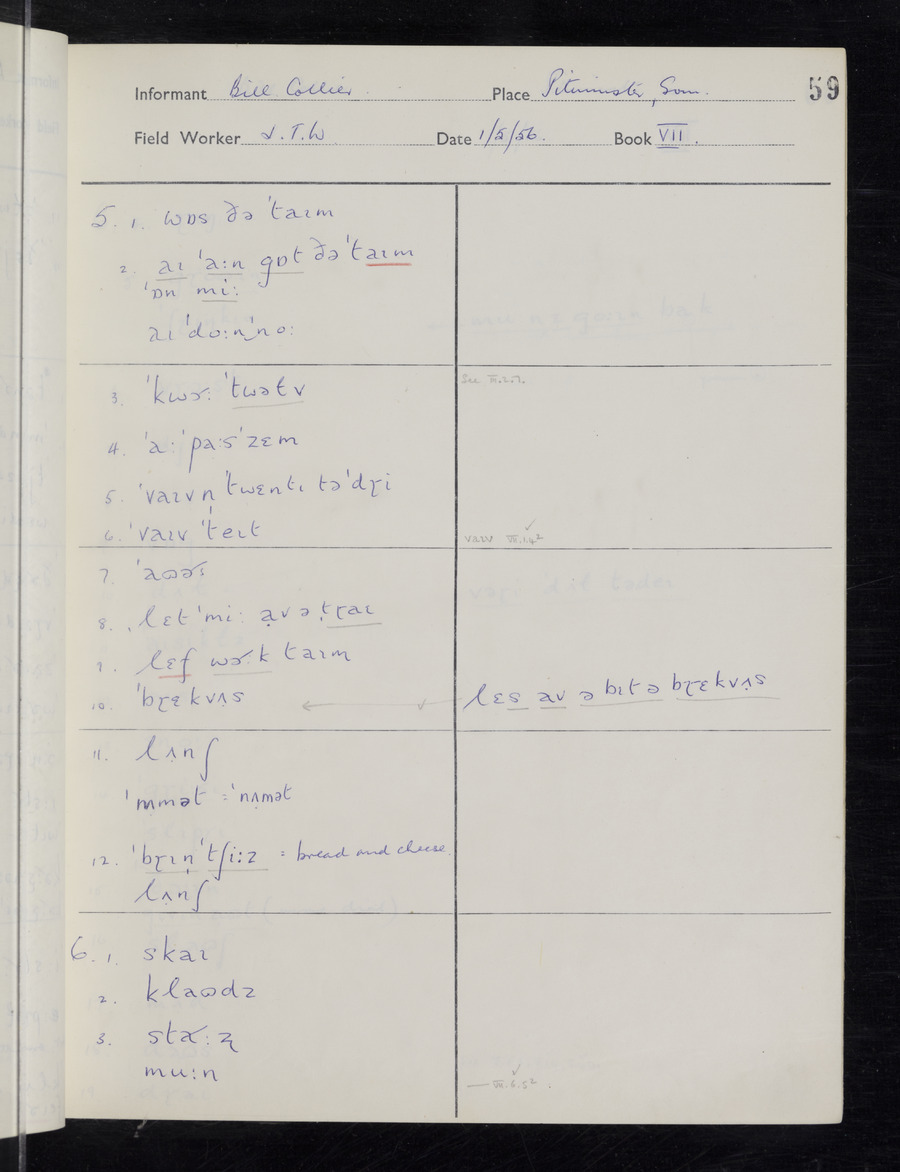 Informant Bill Collier Place Pitminster, Som. 59
Field Worker J.T.W Date 1/5/56. Book VII.
5. 1. wɒs ðə ˈtaɪm
2. aɪ ˈaːn gɒt ðə ˈtaɪm
ˈɒn miː
aɪ ˈdoːn ˈnoː
3. ˈkwɚː ˈtwəlv See VII.2.7.
4. ˈaː ˈpaːs ˈzɛm
5. ˈvaɪv n ˈtwɛntɪ tə ˈdɽi
6. ˈvaɪv ˈteɪt vaɪv VII.1.4² ✓
7. ˈaʊɚː
8. lɛt ˈmiː av ə tɽaɪ
9. lɛf wɚːk taɪm
10. ˈbɽɛkvʌs ← ✓ lɛs av ə bɪt ə bɽɛkvʌs
11. lʌnʃ
ˈm̩mət = ˈnʌmət
12. ˈbɽɪn ˈtʃiːz = bread and cheese
lʌnʃ
6. 1. skaɪ
2. klaʊdz
3. staːʐ
muːn — VII.6.5² ✓.